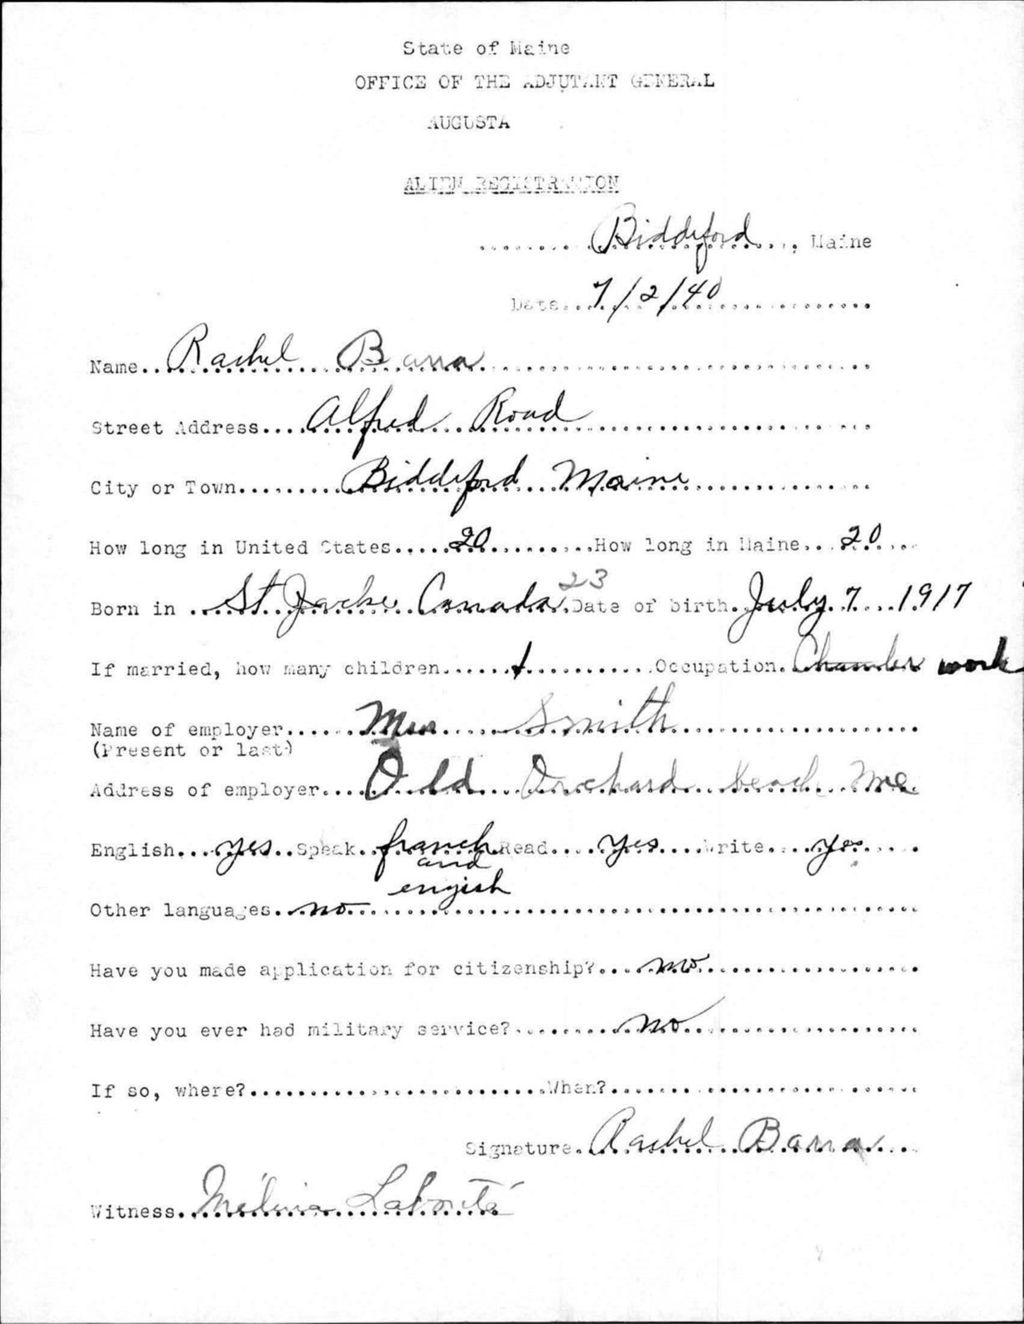 State of Maine
OFFICE OF THE ADJUTANT GENERAL
AUGUSTA
ALIEN REGISTRATION
Biddeford, Maine
Date 7/2/40
Name Rachel Barra
Street Address Alfred Road
City or Town Biddeford Maine
How long in United States 20 How long in Maine 20
Born in St Jacke Canada 23 Date of birth July 7 1917
If married, how many children 1 Occupation Chamber work
Name of employer Mrs Smith
(Present or last)
Address of employer Old Orchard beach Me
English yes Speak franch Read yes Write yes
and
engish
Other languages no
Have you made application for citizenship? no
Have you ever had military service? no
If so, where? When?
Signature Rachel Barra
Witness Mélina Laborité